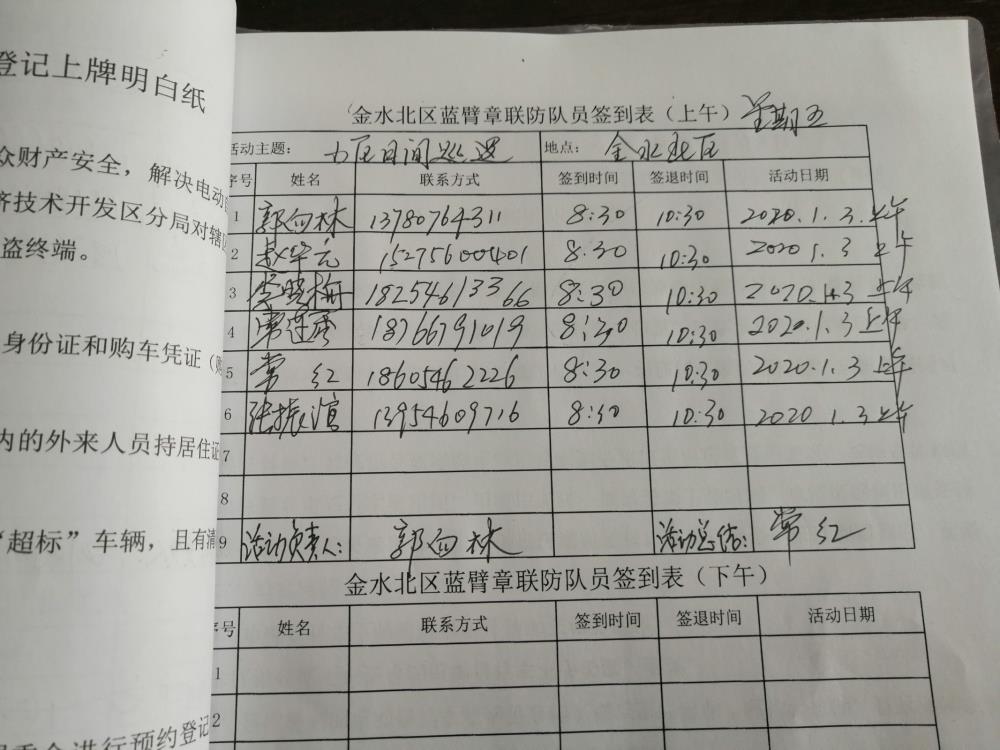 登记上牌明白纸
众财产安全，解决电动
济技术开发区分局对辖
盗终端。
身份证和购车凭证（购
内的外来人员持居住证
“超标”车辆，且有清
行预约登记
金水北区蓝臂章联防队员签到表（上午） 星期五
活动主题： 小区日间巡逻 地点： 金水北区
序号 姓名 联系方式 签到时间 签退时间 活动日期
1 郭向林 13780764311 8:30 10:30 2020.1.3.上午
2 赵华元 15275600401 8:30 10:30 2020 1.3 上午
3 李晓梅 18254613366 8:30 10:30 2020.1.3 上午
4 常连 18766791019 8:30 10:30 2020.1.3上午
5 常红 18605462226 8:30 10:30 2020.1.3 上午
6 张振谊 13954609716 8:30 10:30 2020 1.3上午
7
8
9 活动负责人： 郭向林 活动总结： 常红
金水北区蓝臂章联防队员签到表（下午）
序号 姓名 联系方式 签到时间 签退时间 活动日期
1
2